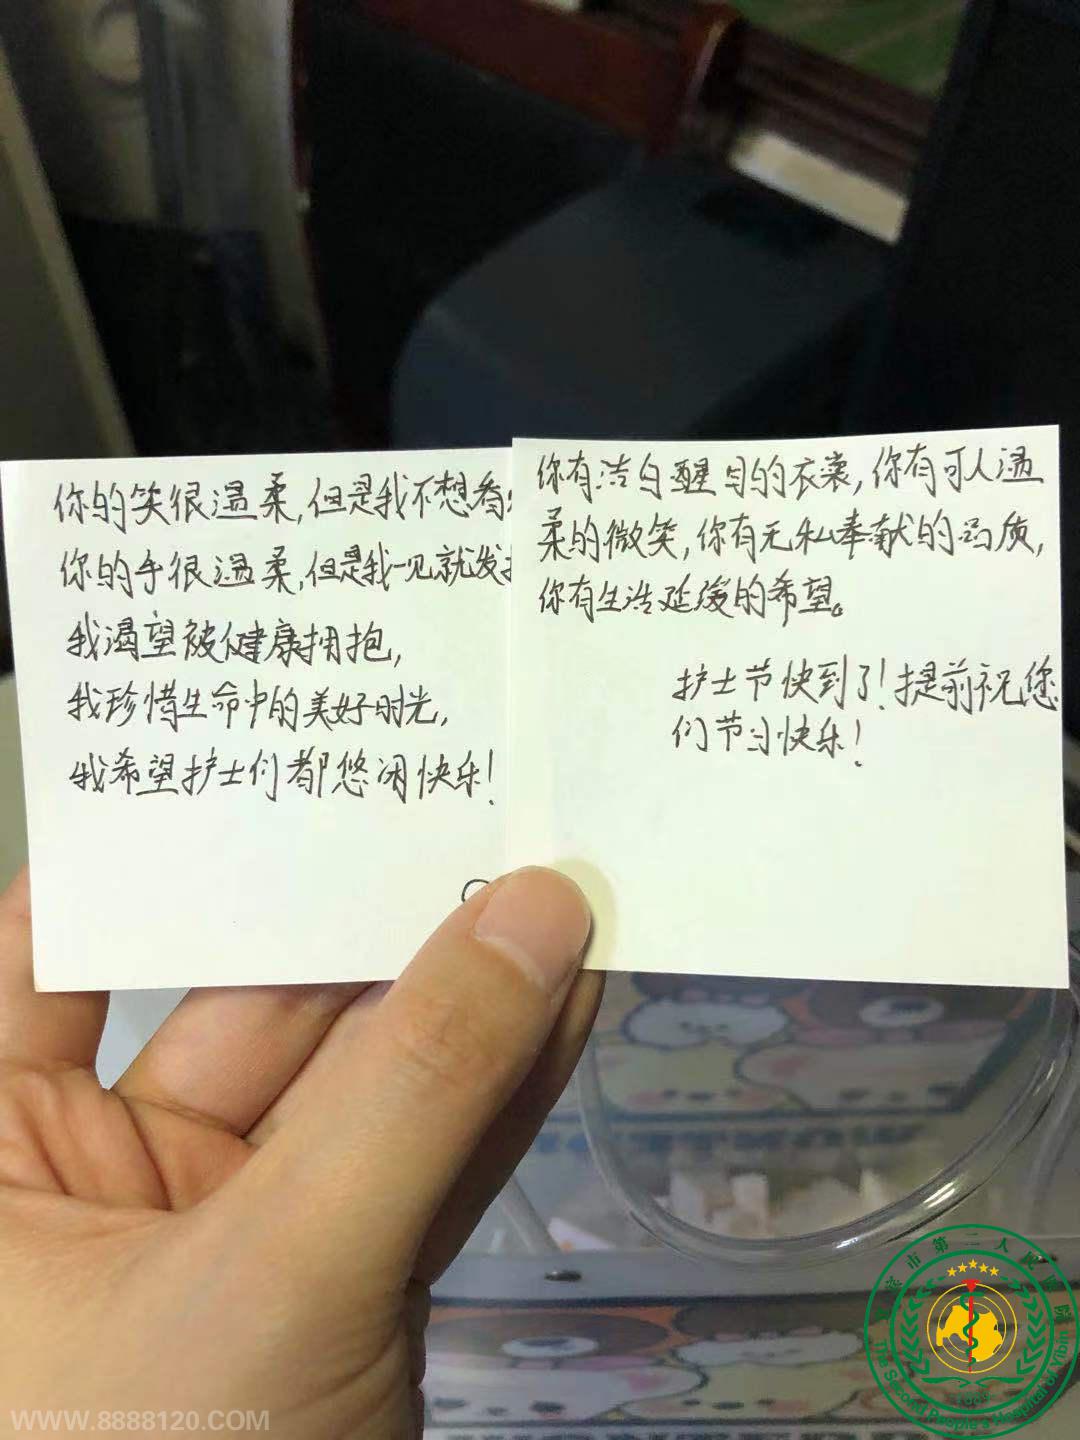 你的笑很温柔,但是我不想看
你的手很温柔,但是我一见就发
我渴望被健康拥抱,
我珍惜生命中的美好时光,
我希望护士们都悠闲快乐!
你有洁白醒目的衣裳,你有可人温
柔的微笑,你有无私奉献的品质,
你有生浩延缓的希望。
护士节快到了!提前祝您
们节日快乐!
宾市第二人民医院
The Second People's Hospital of Yibin
WWW.8888120.COM